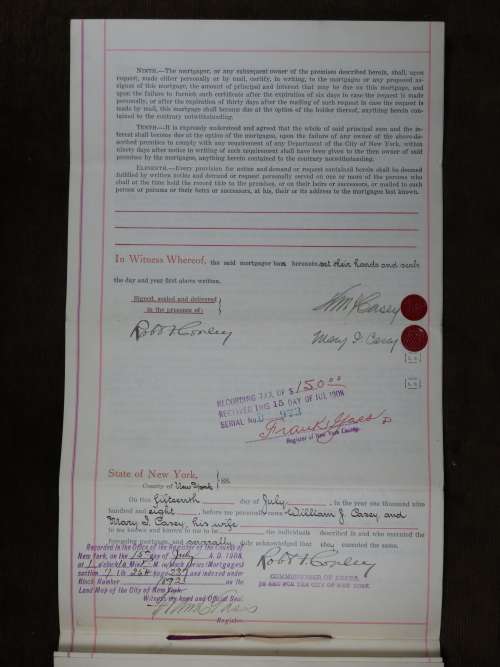 NINTH.—The mortgagor, or any subsequent owner of the premises described herein, shall, upon
request, made either personally or by mail, certify, in writing, to the mortgagee or any proposed as-
signee of this mortgage, the amount of principal and interest that may be due on this mortgage, and
upon the failure to furnish such certificate after the expiration of six days in case the request is made
personally, or after the expiration of thirty days after the mailing of such request in case the request is
made by mail, this mortgage shall become due at the option of the holder thereof, anything herein con-
tained to the contrary notwithstanding.
TENTH.—It is expressly understood and agreed that the whole of said principal sum and the in-
terest shall become due at the option of the mortgagee, upon the failure of any owner of the above-de-
scribed premises to comply with any requirement of any Department of the City of New York, within
ninety days after notice in writing of such requirement shall have been given to the then owner of said
premises by the mortgagee, anything herein contained to the contrary notwithstanding.
ELEVENTH.—Every provision for notice and demand or request contained herein shall be deemed
fulfilled by written notice and demand or request personally served on one or more of the persons who
shall at the time hold the record title to the premises, or on their heirs or successors, or mailed to such
person or persons or their heirs or successors, at his, their or its address to the mortgagee last known.
In Witness Whereof, the said mortgagor have hereunto set their hands and seals
the day and year first above written.
Signed, sealed and delivered
in the presence of:
Wm J Casey
Robt F Conley
Mary I. Casey
L. S.
L. S.
RECORDING TAX OF $ 150.00
RECEIVED THIS 15 DAY OF JUL 1908
SERIAL No. 973
Register of New York County.
State of New York,
County of New York } ss.
On this fifteenth day of July, in the year one thousand nine
hundred and eight, before me personally came William J. Casey and
Mary I. Casey, his wife
to me known and known to me to be the individuals described in and who executed the
foregoing mortgage, and severally duly acknowledged that they executed the same.
Robt F Conley
COMMISSIONER OF DEEDS
IN AND FOR THE CITY OF NEW YORK
Recorded in the Office of the Register of the County of
New York, on the 15 day of July A. D. 1908,
at o'clock M. in Block Series (Mortgages)
section 7 Lib 254 page 237 and indexed under
Block Number 1921 on the
Land Map of the City of New York.
Witness my hand and Official Seal.
Register.